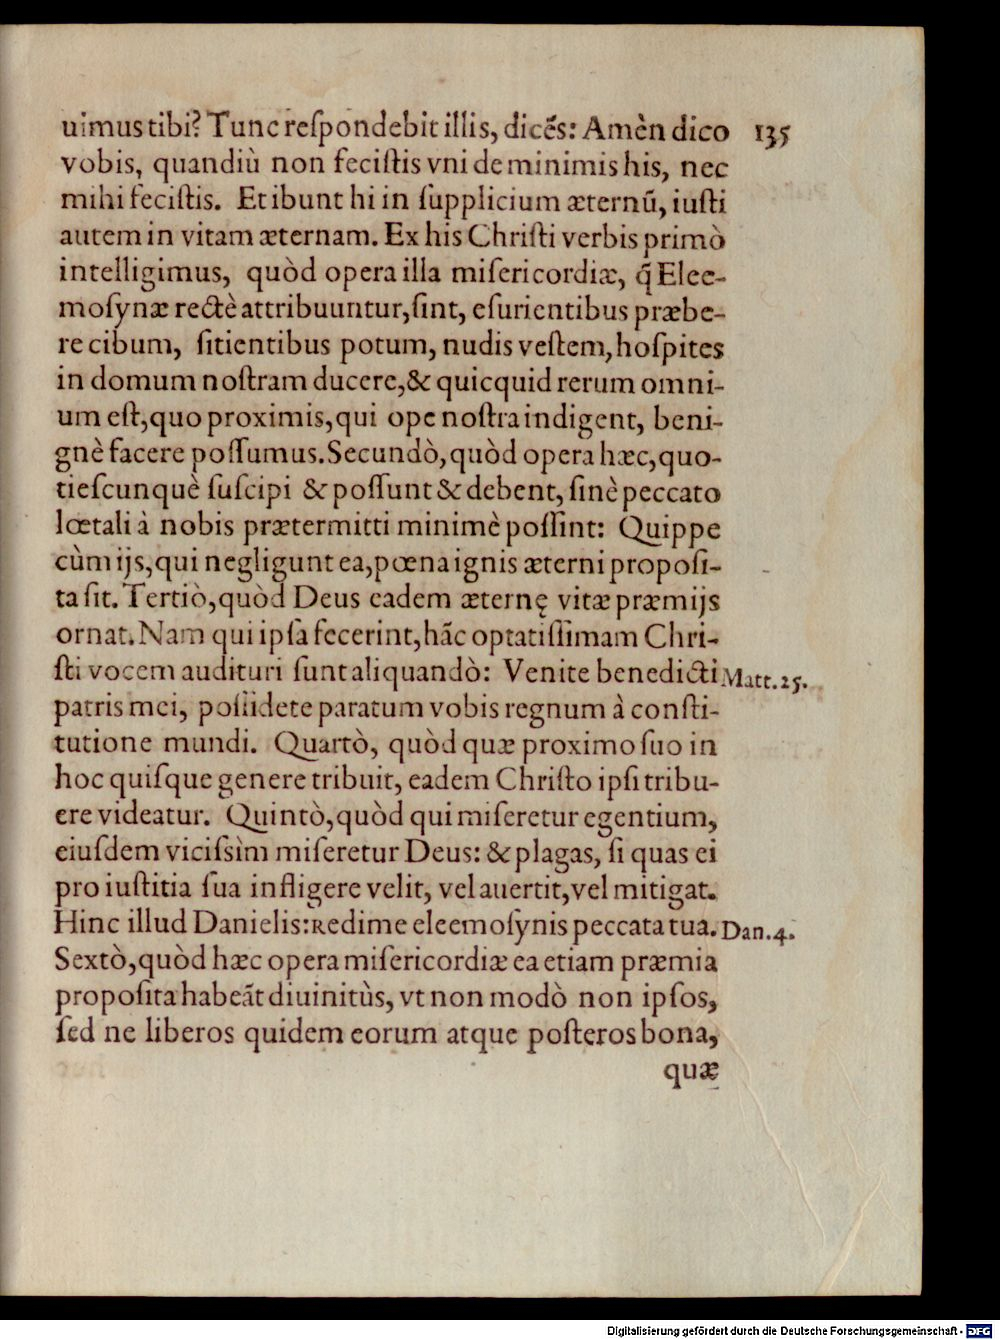 uimus tibi? Tunc reſpondebit illis, dicẽs: Amèn dico 135
vobis, quandiù non feciſtis vni de minimis his, nec
mihi feciſtis. Et ibunt hi in ſupplicium æternũ, iuſti
autem in vitam æternam. Ex his Chriſti verbis primò
intelligimus, quòd opera illa miſericordiæ, q̃ Elee-
moſynæ rectè attribuuntur, ſint, eſurientibus præbe-
re cibum, ſitientibus potum, nudis veſtem, hoſpites
in domum noſtram ducere, & quicquid rerum omni-
um eſt, quo proximis, qui ope noſtra indigent, beni-
gnè facere poſſumus. Secundò, quòd opera hæc, quo-
tieſcunquè ſuſcipi & poſſunt & debent, ſinè peccato
lœtali à nobis prætermitti minimè poſſint: Quippe
cùm ijs, qui negligunt ea, pœna ignis æterni propoſi-
ta ſit. Tertiò, quòd Deus eadem æternę vitæ præmijs
ornat. Nam qui ipſa fecerint, hãc optatiſſimam Chri-
ſti vocem audituri ſunt aliquandò: Venite benedicti Matt. 25.
patris mei, poſſidete paratum vobis regnum à conſti-
tutione mundi. Quartò, quòd quæ proximo ſuo in
hoc quiſque genere tribuit, eadem Chriſto ipſi tribu-
ere videatur. Quintò, quòd qui miſeretur egentium,
eiuſdem viciſsìm miſeretur Deus: & plagas, ſi quas ei
pro iuſtitia ſua infligere velit, vel auertit, vel mitigat.
Hinc illud Danielis: Redime eleemoſynis peccata tua. Dan. 4.
Sextò, quòd hæc opera miſericordiæ ea etiam præmia
propoſita habeãt diuinitùs, vt non modò non ipſos,
ſed ne liberos quidem eorum atque poſteros bona,
quæ
Digitalisierung gefördert durch die Deutsche Forschungsgemeinschaft - DFG